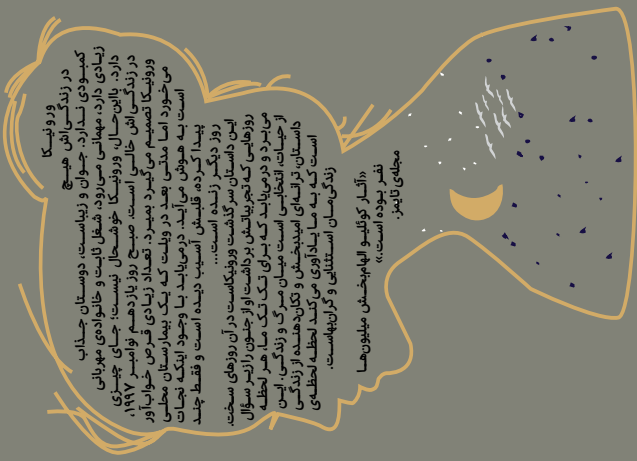 ورونیکا
در زندگی‌اش هیچ
کمبودی ندارد. جوان و زیباست، دوستان جذاب
زیادی دارد، مهمانی می‌رود، شغل ثابت و خانواده‌ی مهربانی
دارد. بااین‌حال، ورونیکا خوشحال نیست؛ جای چیزی
در زندگی‌اش خالی است. صبح روز یازدهم نوامبر ۱۹۹۷،
ورونیکا تصمیم می‌گیرد بمیرد. تعداد زیادی قرص خواب‌آور
می‌خورد اما مدتی بعد در ویلت که یک بیمارستان محلی
است به هوش می‌آید. درمی‌یابد با وجود اینکه نجات
پیدا کرده، قلبش آسیب دیده است و فقط چند
روز دیگر زنده است...
این داستان سرگذشت ورونیکاست در آن روزهای سخت.
روزهایی که تجربیاتش برداشت او از جنون را زیر سؤال
می‌برد و درمی‌یابد که برای تک تک ما، هر لحظه
از حیات، انتخابی است میان مرگ و زندگی. این
داستان، ترانه‌ای امیدبخش و تکان‌دهنده از زندگی
است که به ما یادآوری می‌کند لحظه لحظه‌ی
زندگی‌مان استثنایی و گران‌بهاست.
«آثار کوئلیو الهام‌بخش میلیون‌ها
نفر بوده است.»
مجله‌ی تایمز.